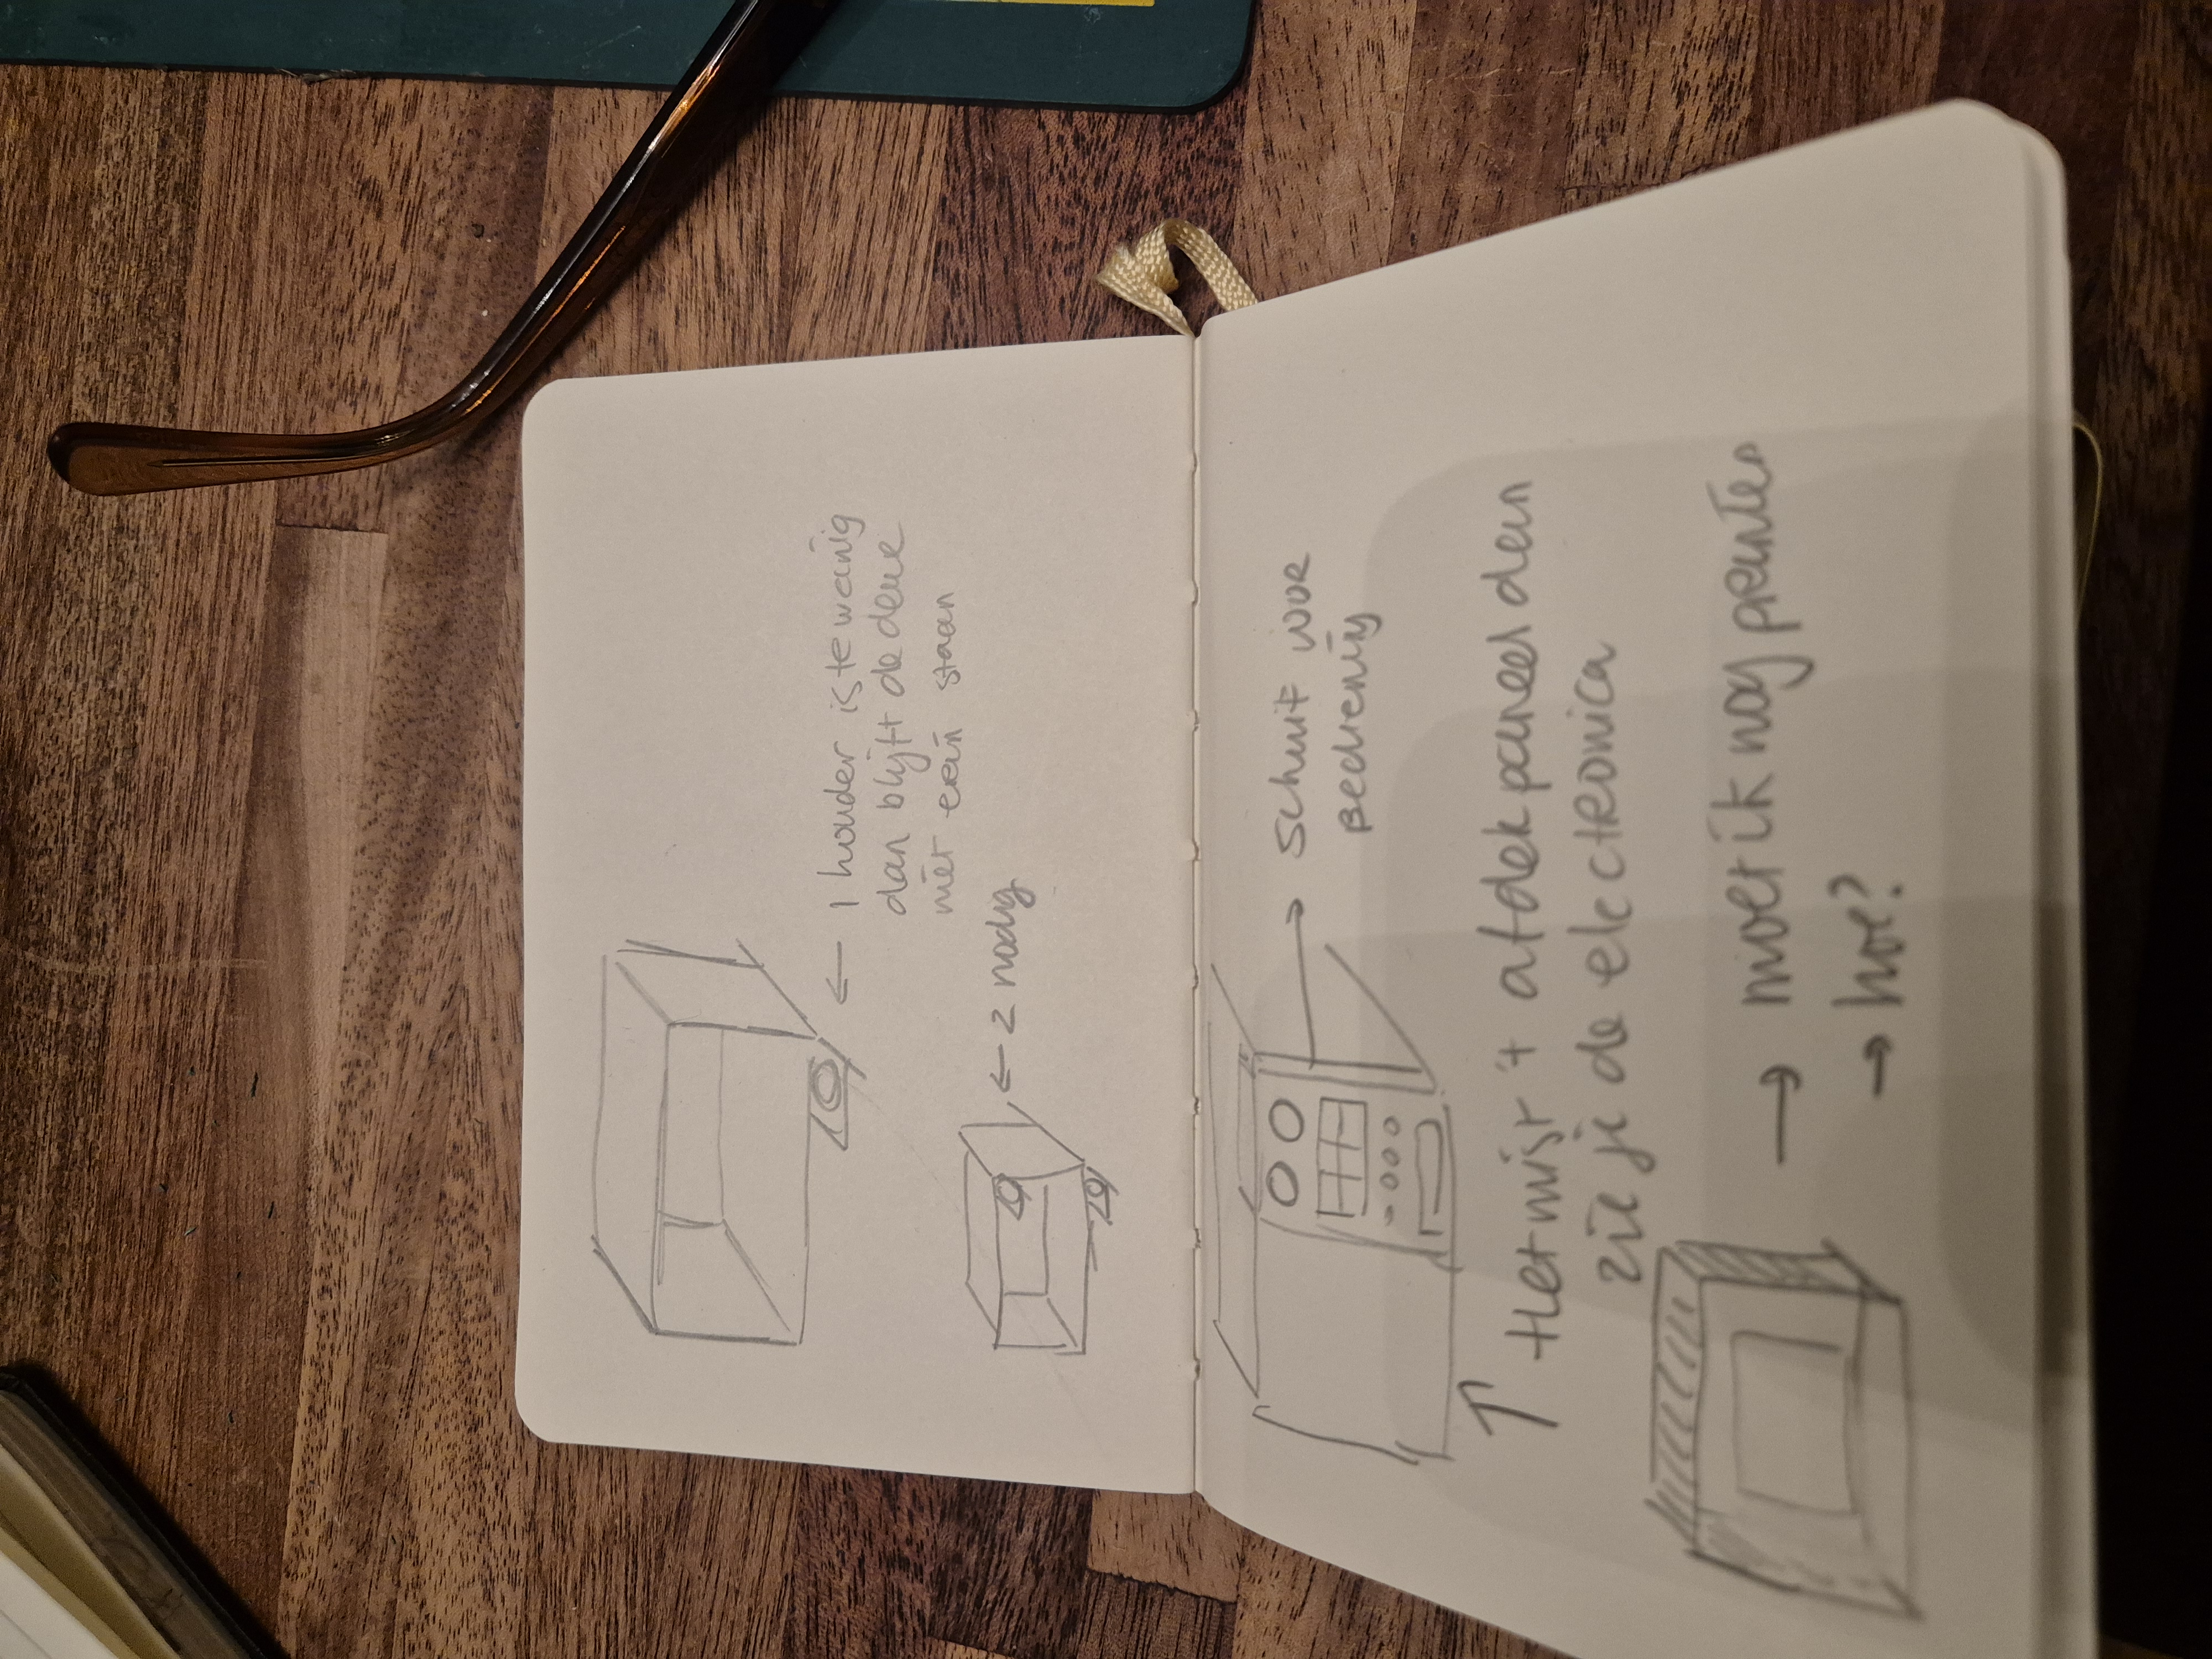 1 houder is te weinig
dan blijft de deur
niet erin staan
2 nodig
Schuif voor
Bediening
Het mist 't afdek paneel dan
zie je de electronica
moet ik nog printen
hoe?